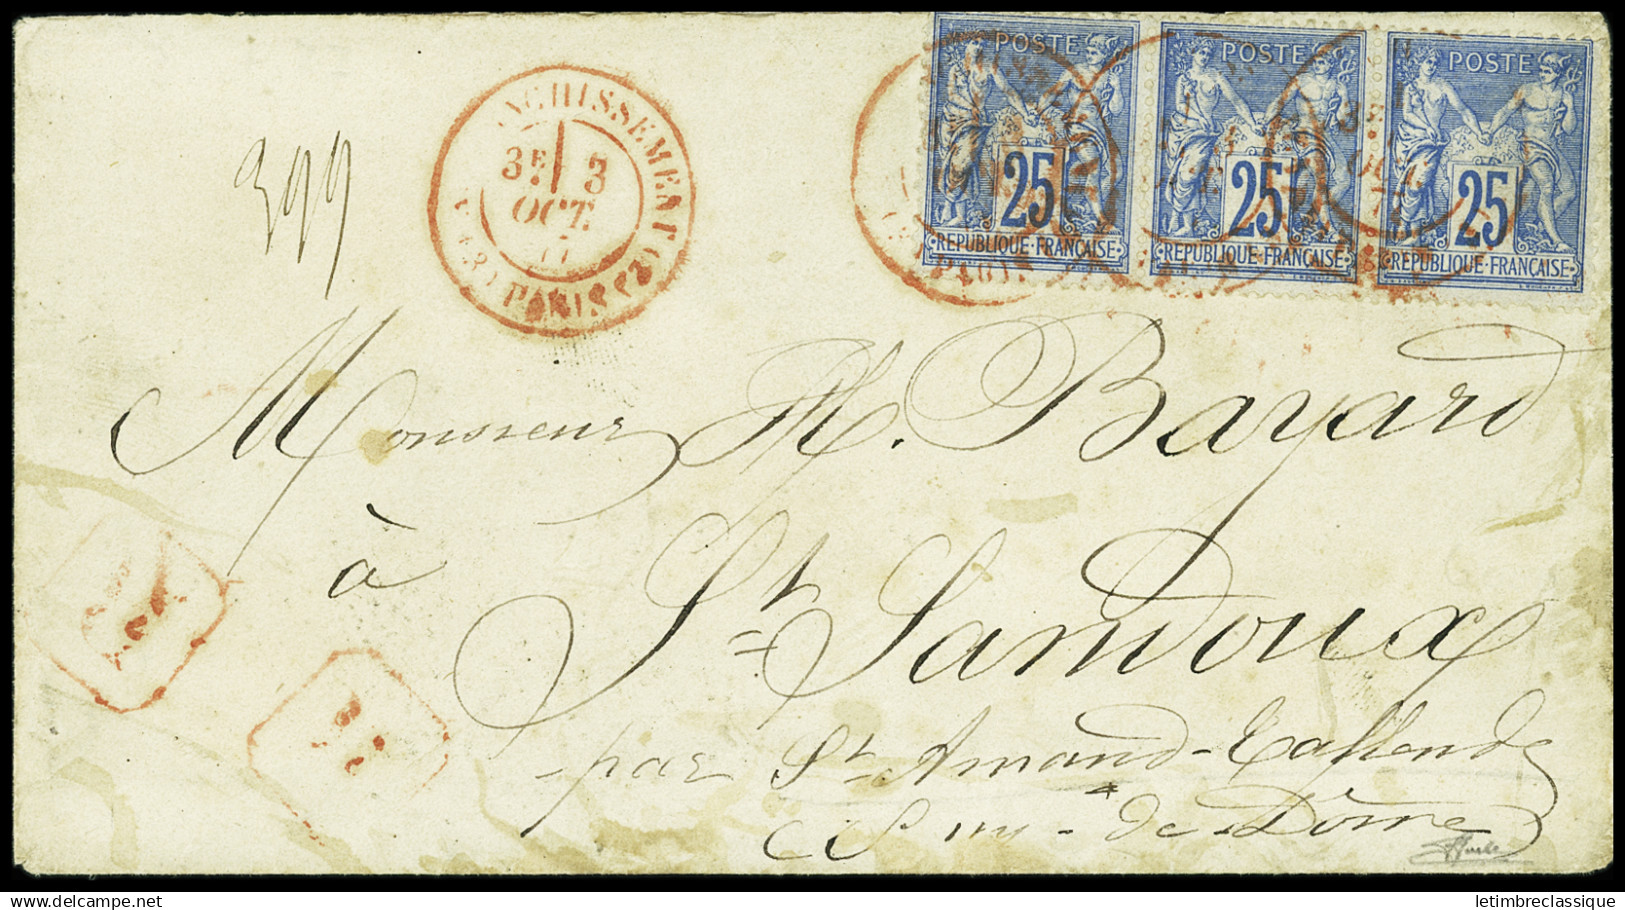 POSTE POSTE POSTE
25 25 25
REPUBLIQUE·FRANÇAISE REPUBLIQUE·FRANÇAISE REPUBLIQUE·FRANÇAISE
3E 3
OCT.
PARIS
PARIS
399
Monsieur M. Bayard
à
St Sandoux
par St Amand-Tallende
Puy-de Dôme
delcampe.net
letimbreclassique